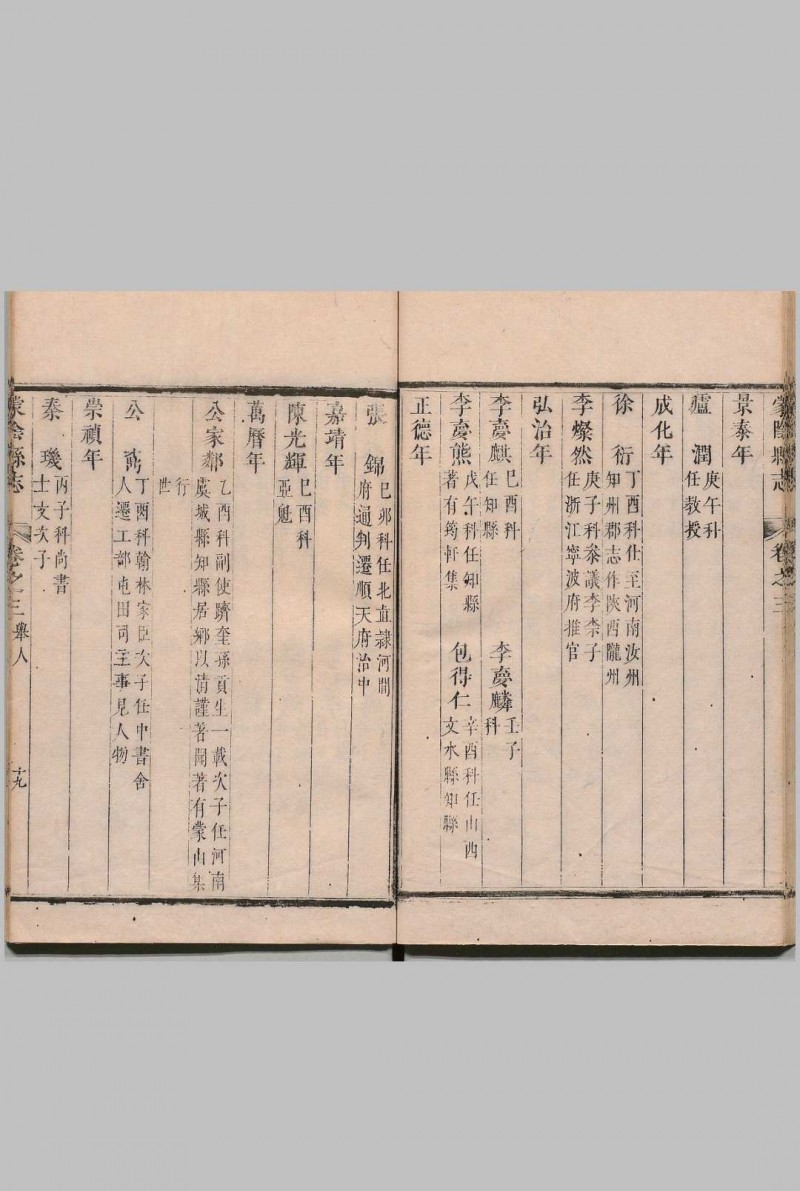 蒙陰縣志 卷之三
景泰年
盧潤 庚午科任教授
成化年
徐衍 丁酉科仕至河南汝州知州郡志作陝西隴州
李燦然 庚子科叅議李柰子任浙江寧波府推官
弘治年
李慶麒 己酉科任知縣 李慶麟 壬子科
李慶熊 戊午科任知縣著有筠軒集 包得仁 辛酉科任山西文水縣知縣
正德年
張錦 己卯科任北直隷河間府通判遷順天府治中
嘉靖年
陳光輝 己酉科亞魁
萬曆年
公家鄰 乙酉科副使躋奎孫貢生一載次子任河南虞城縣知縣居鄉以清謹著聞著有蒙山集行世
公 丁酉科翰林家臣次子任中書舍人遷工部屯田司主事見人物
崇禎年
秦璣 丙子科尚書士文次子
蒙陰縣志 卷之三 舉人 十九